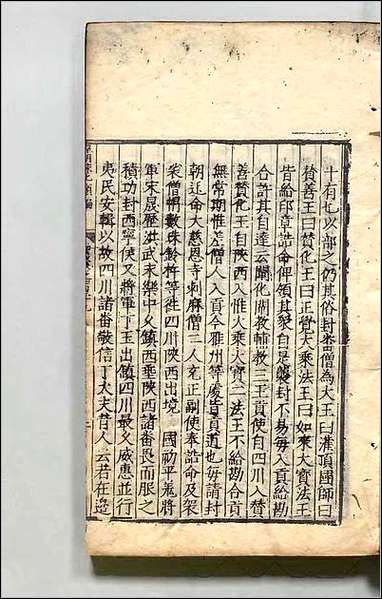 十有七以部之仍其俗封番僧為大王曰灌頂國師曰
贊善王曰贊化王曰正覺大乘法王曰如來大寶法王
皆給印章誥命俾領其衆自是襲封不易每入貢給勘
合許其自達云闡化闡教輔教三王貢使自四川入贊
善贊化王自陝西入惟大乘大寶二法王不給勘合貢
無常期惟差僧人入貢今雅州等處皆貢道也每請封
朝廷命大慈恩寺剌麻僧二人充正副使奉誥命及架
裟僧帽數珠鈴杵等徃四川陝西出境 國初平羗將
軍宋晟歷洪武永樂中久鎮西垂陝西諸番畏而服之
積功封西寧侯又將軍丁玉出鎮四川最久威惠並行
夷民安輯以故四川諸番敬信丁大夫昔人云若在邉